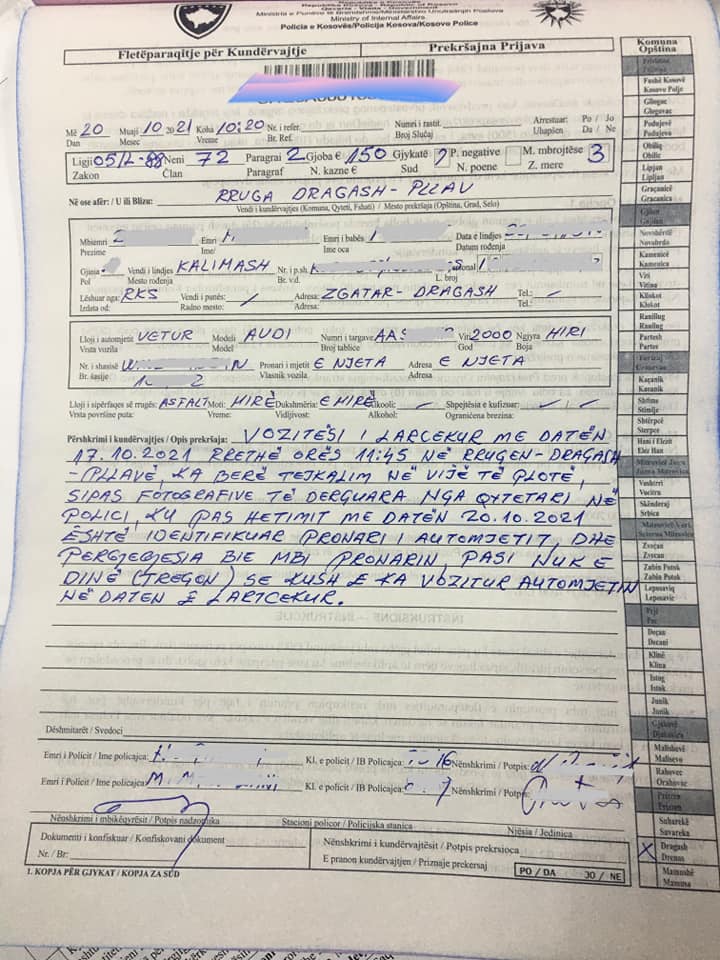 Republika e Kosovës
Republika Kosova - Republic of Kosovo
Qeveria - Vlada - Government
Ministria e Punëve të Brendshme/Ministarstvo Unutrašnjih Poslova
Ministry of Internal Affairs
Policia e Kosovës/Policija Kosova/Kosovo Police
Fletëparaqitje për Kundërvajtje
Prekršajna Prijava
Komuna
Opština
Më 20 Muaji 10 2021 Koha 10:20 Nr. i refer. Numri i rastit. Arrestuar: Po / Jo
Dan Mesec Vreme Br. Ref. Broj Slučaj Uhapšen Da / Ne
Ligji 05/L-88 Neni 72 Paragrai 2 Gjoba € 150 Gjykatë P. negative M. mbrojtëse 3
Zakon Član Paragraf N. kazne € Sud N. poene Z. mere
Në ose afër: / U ili Blizu: RRUGA DRAGASH - PLLAV
Vendi i kundërvajtjes (Komuna, Qyteti, Fshati) / Mesto prekršaja (Opština, Grad, Selo)
Mbiemri Emri Emri i babës Data e lindjes
Prezime Ime/ Ime oca Datum rođenja
Gjinia Vendi i lindjes KALIMASH Nr. i p.sh.
Pol Mesto rođenja Br. v.d. L. broj
Lëshuar nga: RKS Vendi i punës: / Adresa: ZGATAR- DRAGASH Tel.:
Izdata od: Radno mesto: Adresa: Tel.:
Lloji i automjetit VETUR Modeli AUDI Numri i targave AAS Viti 2000 Ngjyra HIRI
Vrsta vozila Model Broj tablice God Boja
Nr. i shasisë Pronari i mjetit E NJETA Adresa E NJETA
Br. šasije Vlasnik vozila. Adresa
Lloji i sipërfaqes së rrugës: ASFALT Moti: MIRË Dukshmëria: E MIRË Alkooli: Shpejtësia e kufizuar:
Vrsta površine puta: Vreme: Vidljivost: Alkohol: Ograničena brezina:
Përshkrimi i kundërvajtjes / Opis prekršaja: VOZITËSI I LARCEKUR ME DATËN
17.10.2021 RRETHË ORËS 11:45 NË RRUGEN - DRAGASH
- PLLAVË, KA BERË TEJKALIM NË VIJË TË PLOTË
SIPAS FOTOGRAFIVE TË DERGUARA NGA QYTETARI NË
POLICI, KU PAS HETIMIT ME DATËN 20.10.2021
ËSHTË IDENTIFIKUAR PRONARI I AUTOMJETIT, DHE
PERGJEGJESIA BIE MBI PRONARIN, PASI NUK E
DINË (TREGON) SE KUSH E KA VOZITUR AUTOMJETIN
NË DATEN E LARTCEKUR.
Dëshmitarët / Svedoci
Emri i Policit / Ime policajca: Kl. e policit / IB Policajca: Nënshkrimi / Potpis:
Emri i Policit / Ime policajca: Kl. e policit / IB Policajca: Nënshkrimi / Potpis:
Nënshkrimi i mbikëqyrësit / Potpis nadzornika Stacioni policor / Policijska stanica Njësia / Jedinica
Dokumenti i konfiskuar / Konfiskovani dokument
Nr. / Br:
Nënshkrimi i kundërvajtësit / Potpis prekrsioca
E pranon kundërvajtjen / Priznaje prekersaj PO / DA JO / NE
1. KOPJA PËR GJYKAT / KOPJA ZA SUD
Fushë Kosovë
Kosovo Polje
Gllogoc
Glogovac
Podujevë
Podujeva
Obiliq
Obilic
Lipjan
Lipljan
Graçanicë
Gracanica
Novobërdë
Novobrdo
Kamenicë
Kamenica
Viti
Vitina
Kllokot
Klokot
Ranillug
Ranilug
Partesh
Partes
Kaçanik
Kacanik
Shtime
Stimlje
Shtërpcë
Sterpce
Hani i Elezit
Elez Han
Vushtrri
Vucitrn
Skënderaj
Srbica
Zveçan
Zvecan
Zubin Potok
Zubin Potok
Leposaviq
Leposavic
Pejë
Pec
Deçan
Decani
Klinë
Klina
Istog
Istok
Junik
Junik
Malishevë
Malisevo
Rahovec
Orahovac
Prizren
Prizren
Suharekë
Suvareka
X Dragash
Mamushë
Mamusa